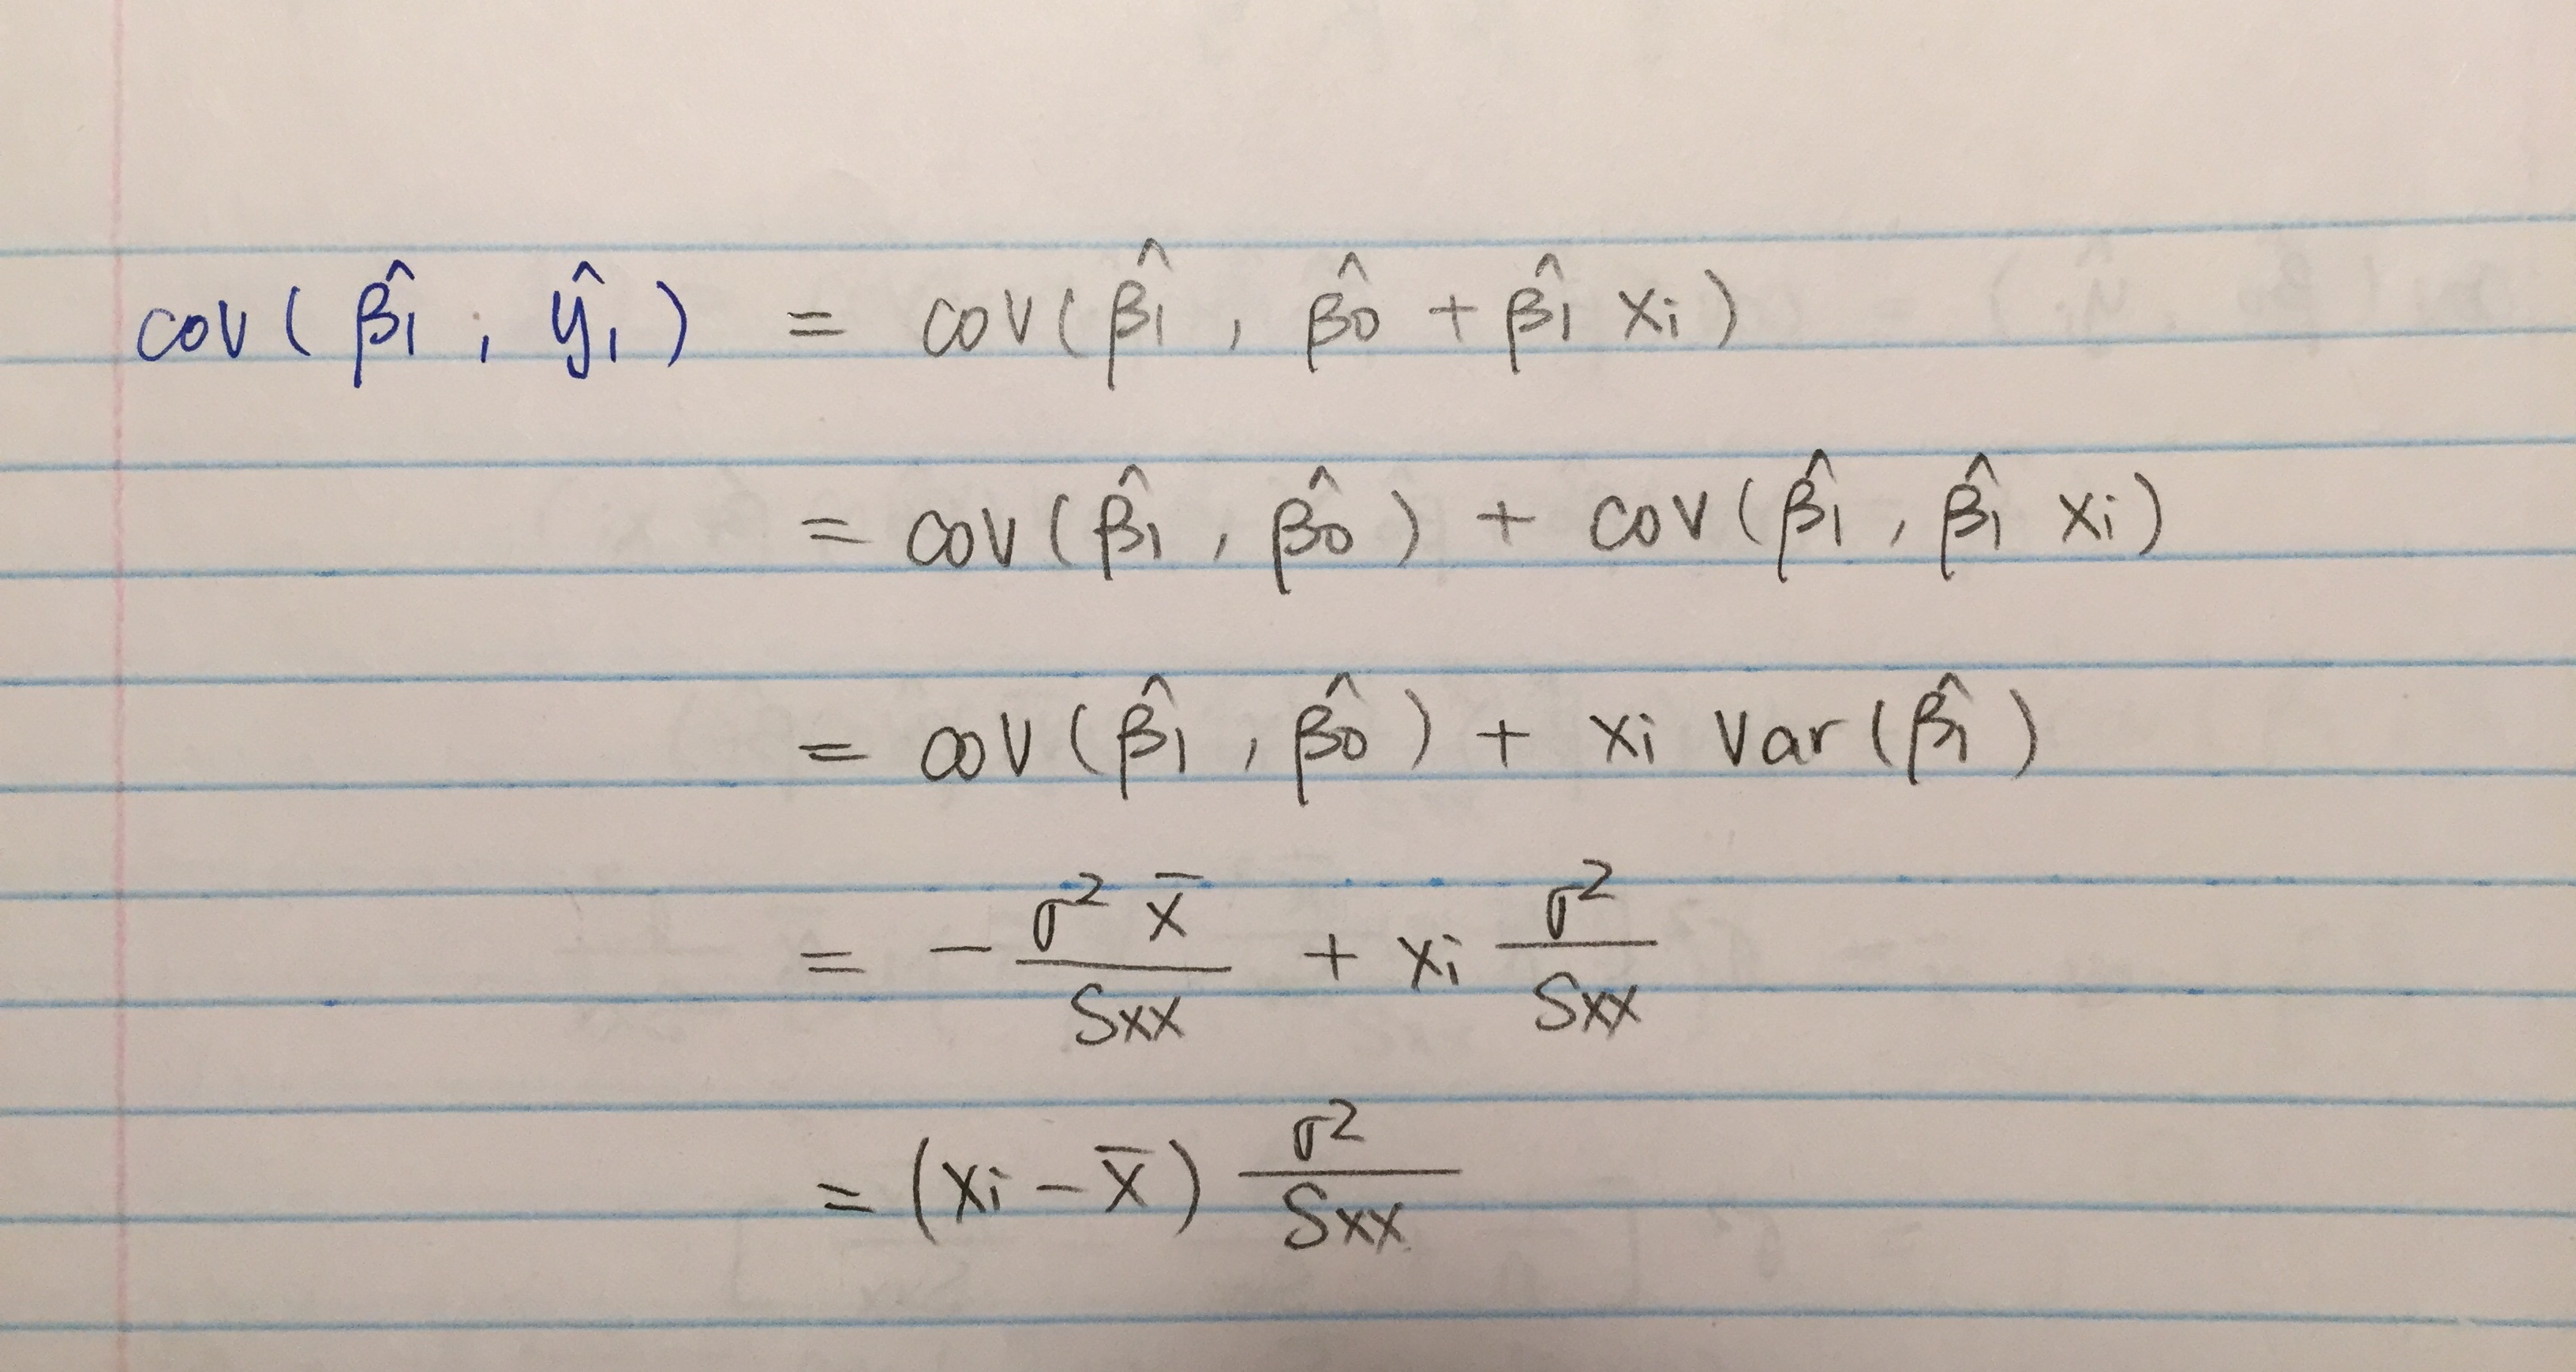 cov(β̂1, ŷ1) = cov(β̂1, β̂0 + β̂1 xi)
= cov(β̂1, β̂0) + cov(β̂1, β̂1 xi)
= cov(β̂1, β̂0) + xi Var(β̂1)
= - σ² x̄ / Sxx + xi σ² / Sxx
= (xi - x̄) σ² / Sxx